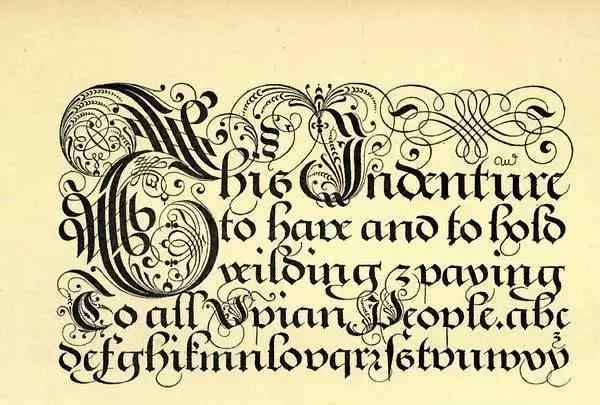 This Indenture
to have and to hold
yeilding & paying
To all Xpian People. abc
defghikmnlopqrꝛſstvuwxyz